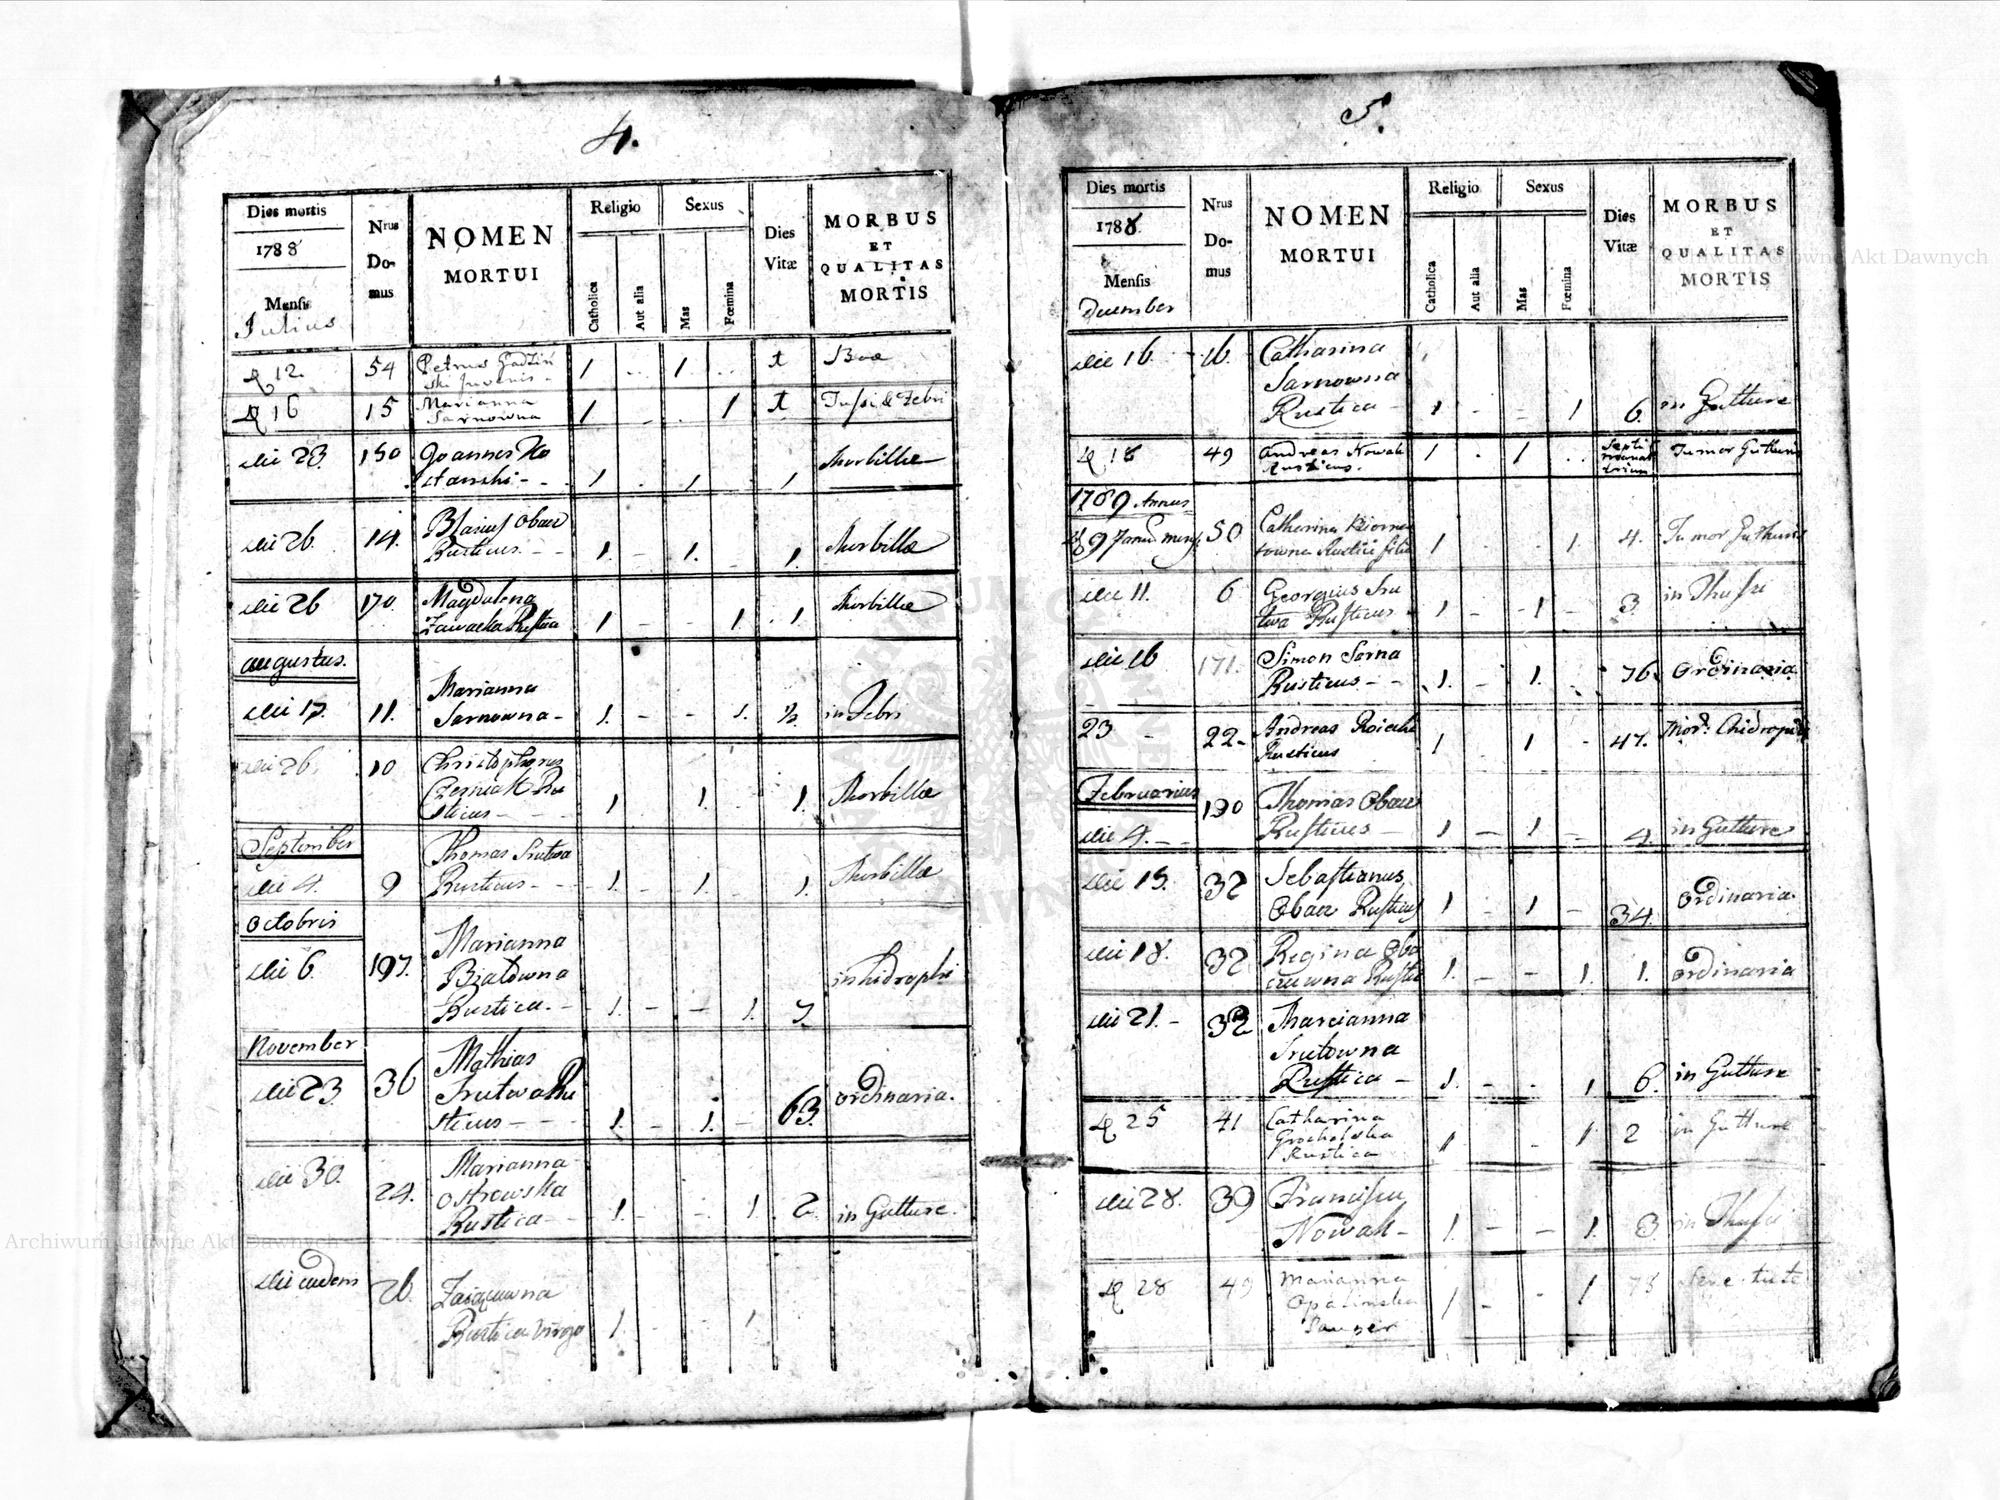 4.
Dies mortis
1788
Mensis
Julius
Nrus
Do-
mus
NOMEN
MORTUI
Religio
Catholica
Aut alia
Sexus
Mas
Fœmina
Dies
Vitæ
MORBUS
ET
QUALITAS
MORTIS
12. 54 Petrus
ski Juvenis - 1 1 t
16 15 Marianna
Sarnowna 1 1 t
die 23. 150 Joannes
1 1 1 Morbillæ
die 26. 14. Blasius Obacz
Rusticus - - 1. 1. 1. Morbillæ
die 26 170. Magdalena
Zawacka Rustica 1. - - 1. 1. Morbillæ
augustus.
die 17. 11. Marianna
Sarnowna - 1. - - 1. ½ in Febri
die 26. 10 Christophorus
Czerniak Ru
sticus - 1. 1. 1. Morbillæ
September
die 4. 9 Thomas Srutwa
Rusticus - - 1. - 1. - 1. Morbillæ
Octobris
die 6. 197. Marianna
Białowna
Rustica. - 1. - - 1. 7. in hidrophi
November
die 23. 36 Mathias
Srutwa Ru
sticus - - 1. - 1. - 63. ordinaria.
die 30. 24. Marianna
Ostrowska
Rustica - 1. - - 1. 2. in Gutture.
die eadem 26.
Rustica Virgo 1. - - 1.
5.
Dies mortis
1788.
Mensis
December
Nrus
Do-
mus
NOMEN
MORTUI
Religio
Catholica
Aut alia
Sexus
Mas
Fœmina
Dies
Vitæ
MORBUS
ET
QUALITAS
MORTIS
die 16. 16. Catharina
Sarnowna
Rustica - 1 - - 1 6. in Gutture
18 49 Andreas Nowak
Rusticus. 1 . 1 . Tumor Gutturis
1789 Annus
9 50 Catharina
Rustici filia 1 - - 1. 4. Tumor Gutturis
die 11. 6 Georgius Sru
twa Rusticus 1 - 1 - 3.
die 16 171. Simon Sarna
Rusticus - - 1. - 1. - 76. Ordinaria
23 - 22. Andreas
Rusticus 1 1 - 47.
Februarius
die 4. - 190 Thomas Obacz
Rusticus - 1 - 1 - 4. in Gutture
die 15. 32 Sebastianus
Obacz Rusticus 1 - 1 - 34. Ordinaria.
die 18. 32 Regina Oba
czuwna Rustica 1. - - 1. 1. Ordinaria
die 21. - 32 Marcianna
Srutowna
Rustica - 1. - - 1 6. in Gutture
25 41 Catharina
Grocholska
Rustica 1 - 1 2 in Gutture
die 28. 39 Francisca
Nowak - 1. - - 1. 3
28 49 Marianna
Opalinska
1 - - 1
Archiwum Główne Akt Dawnych